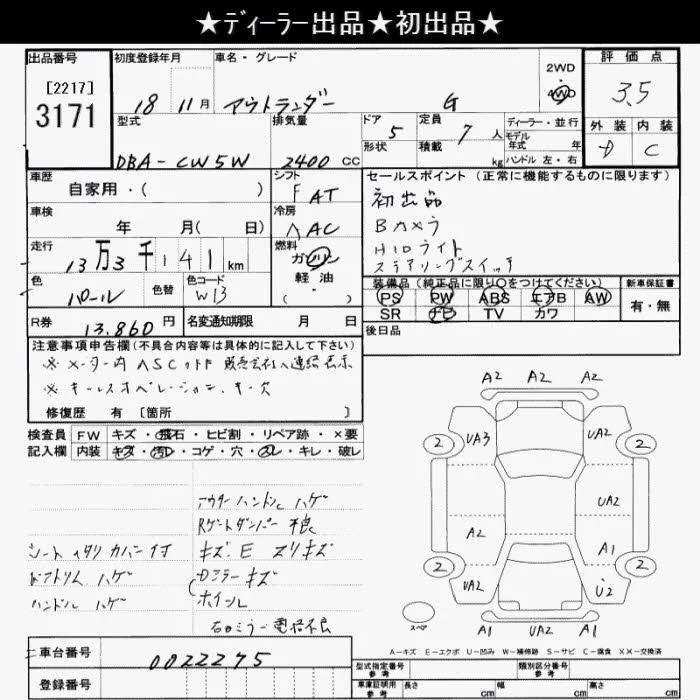 ★ディーラー出品★初出品★
出品番号
[2217]
3171
初度登録年月
18 11月
車名・グレード
アウトランダー G
2WD
・
4WD
評価点
3.5
型式
DBA-CW5W
排気量
2400 CC
ドア 5
形状
定員 7 人
積載 kg
ディーラー・並行
モデル
年式 年
ハンドル 左・右
外装 内装
D C
車歴
自家用・( )
シフト
F AT
セールスポイント (正常に機能するものに限ります)
初出品
Bカメラ
HIDライト
ステアリングスイッチ
車検
年 月( 日)
冷房
AAC
走行
13万3千141km
燃料
ガソリン
軽油
( ・ )
色
パール
色替
色コード
W13
装備品(純正品に限り〇をつけてください)
PS PW ABS エアB AW
SR ナビ TV カワ
新車保証書
有・無
R券
13,860円
名変通知期限 月 日
後日品
注意事項申告欄(不具合内容等は具体的に記入して下さい)
※メーター内ASC
※キーレスオペレーション キー欠
修復歴 有 [箇所 ]
検査員 FW キズ・飛石・ヒビ割・リペア跡・×要
記入欄 内装 キズ・汚レ・コゲ・穴・スレ・キレ・破レ
アウターハンドルハゲ
Rゲートダンパー不良
シート カバー付
キズ.E スリキズ
ドアトリムハゲ
Dミラーキズ
ハンドルハゲ
ホイール
右ドミラー電格不良
A2 A2 A2
2 UA3 UA2 2
UA2
A2 A1
2 UA2 U2 2
スペア
A1 UA2 A1
A-キズ E-エクボ U-凹み W-補修跡 S-サビ C-腐食 XX-交換済
車台番号
0022275
登録番号
型式指定番号
参考
類別区分番号
参考
車庫証明用
参考
長さ cm
幅 cm
高さ cm